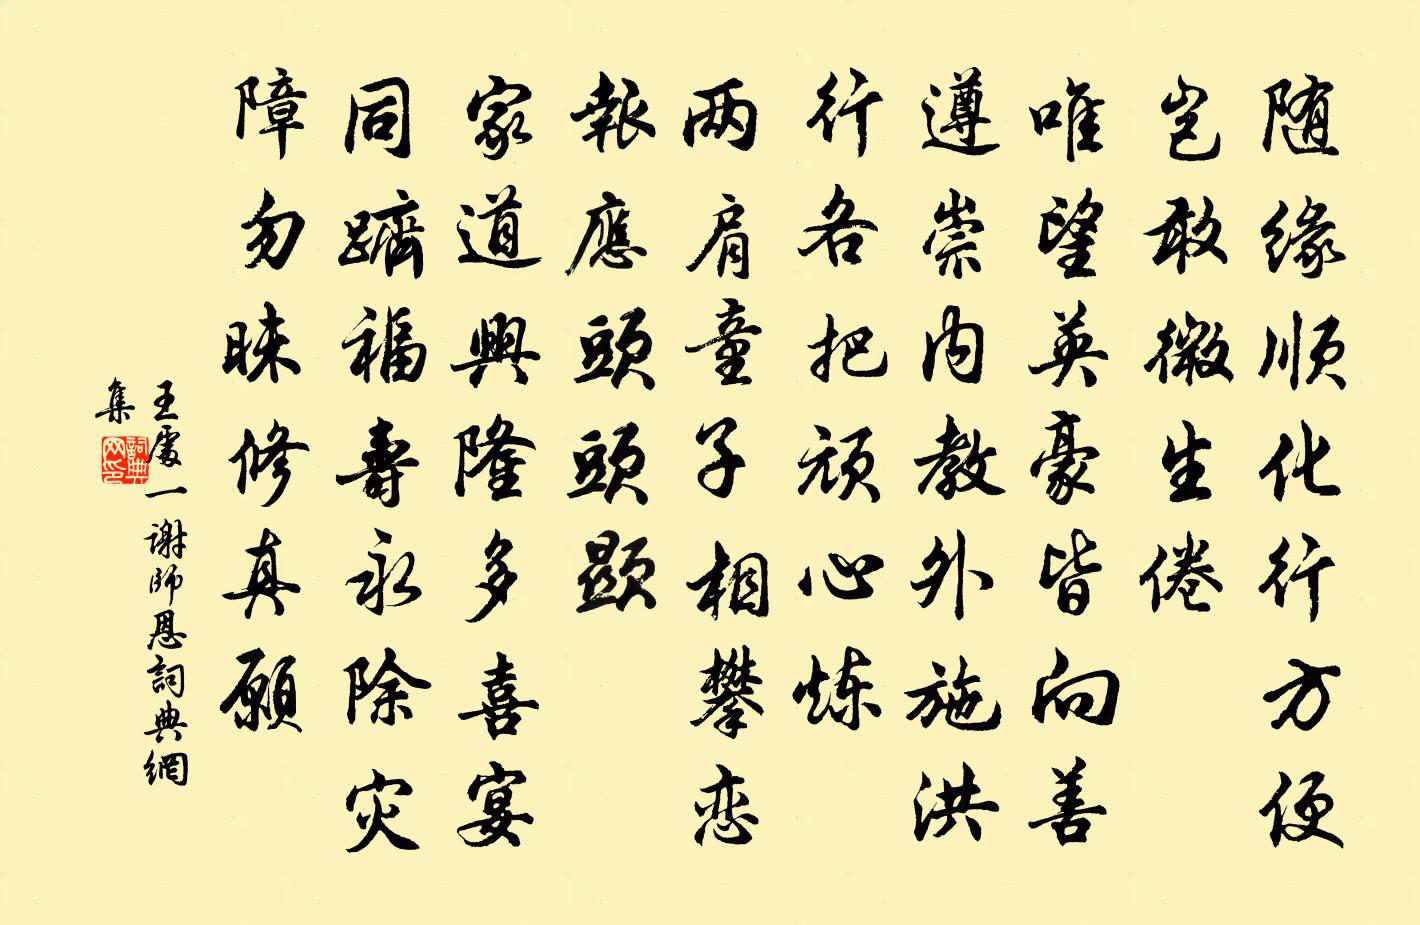 随緣順化行方便
豈敢微生倦
唯望英豪皆向善
遵崇内教外施洪
行各把頑心煉
两肩童子相攀恋
報應頭頭顯
家道興隆多喜宴
同躋福壽永除灾
障勿昧修真願
王處一謝師恩詞典網
集
詞典网印